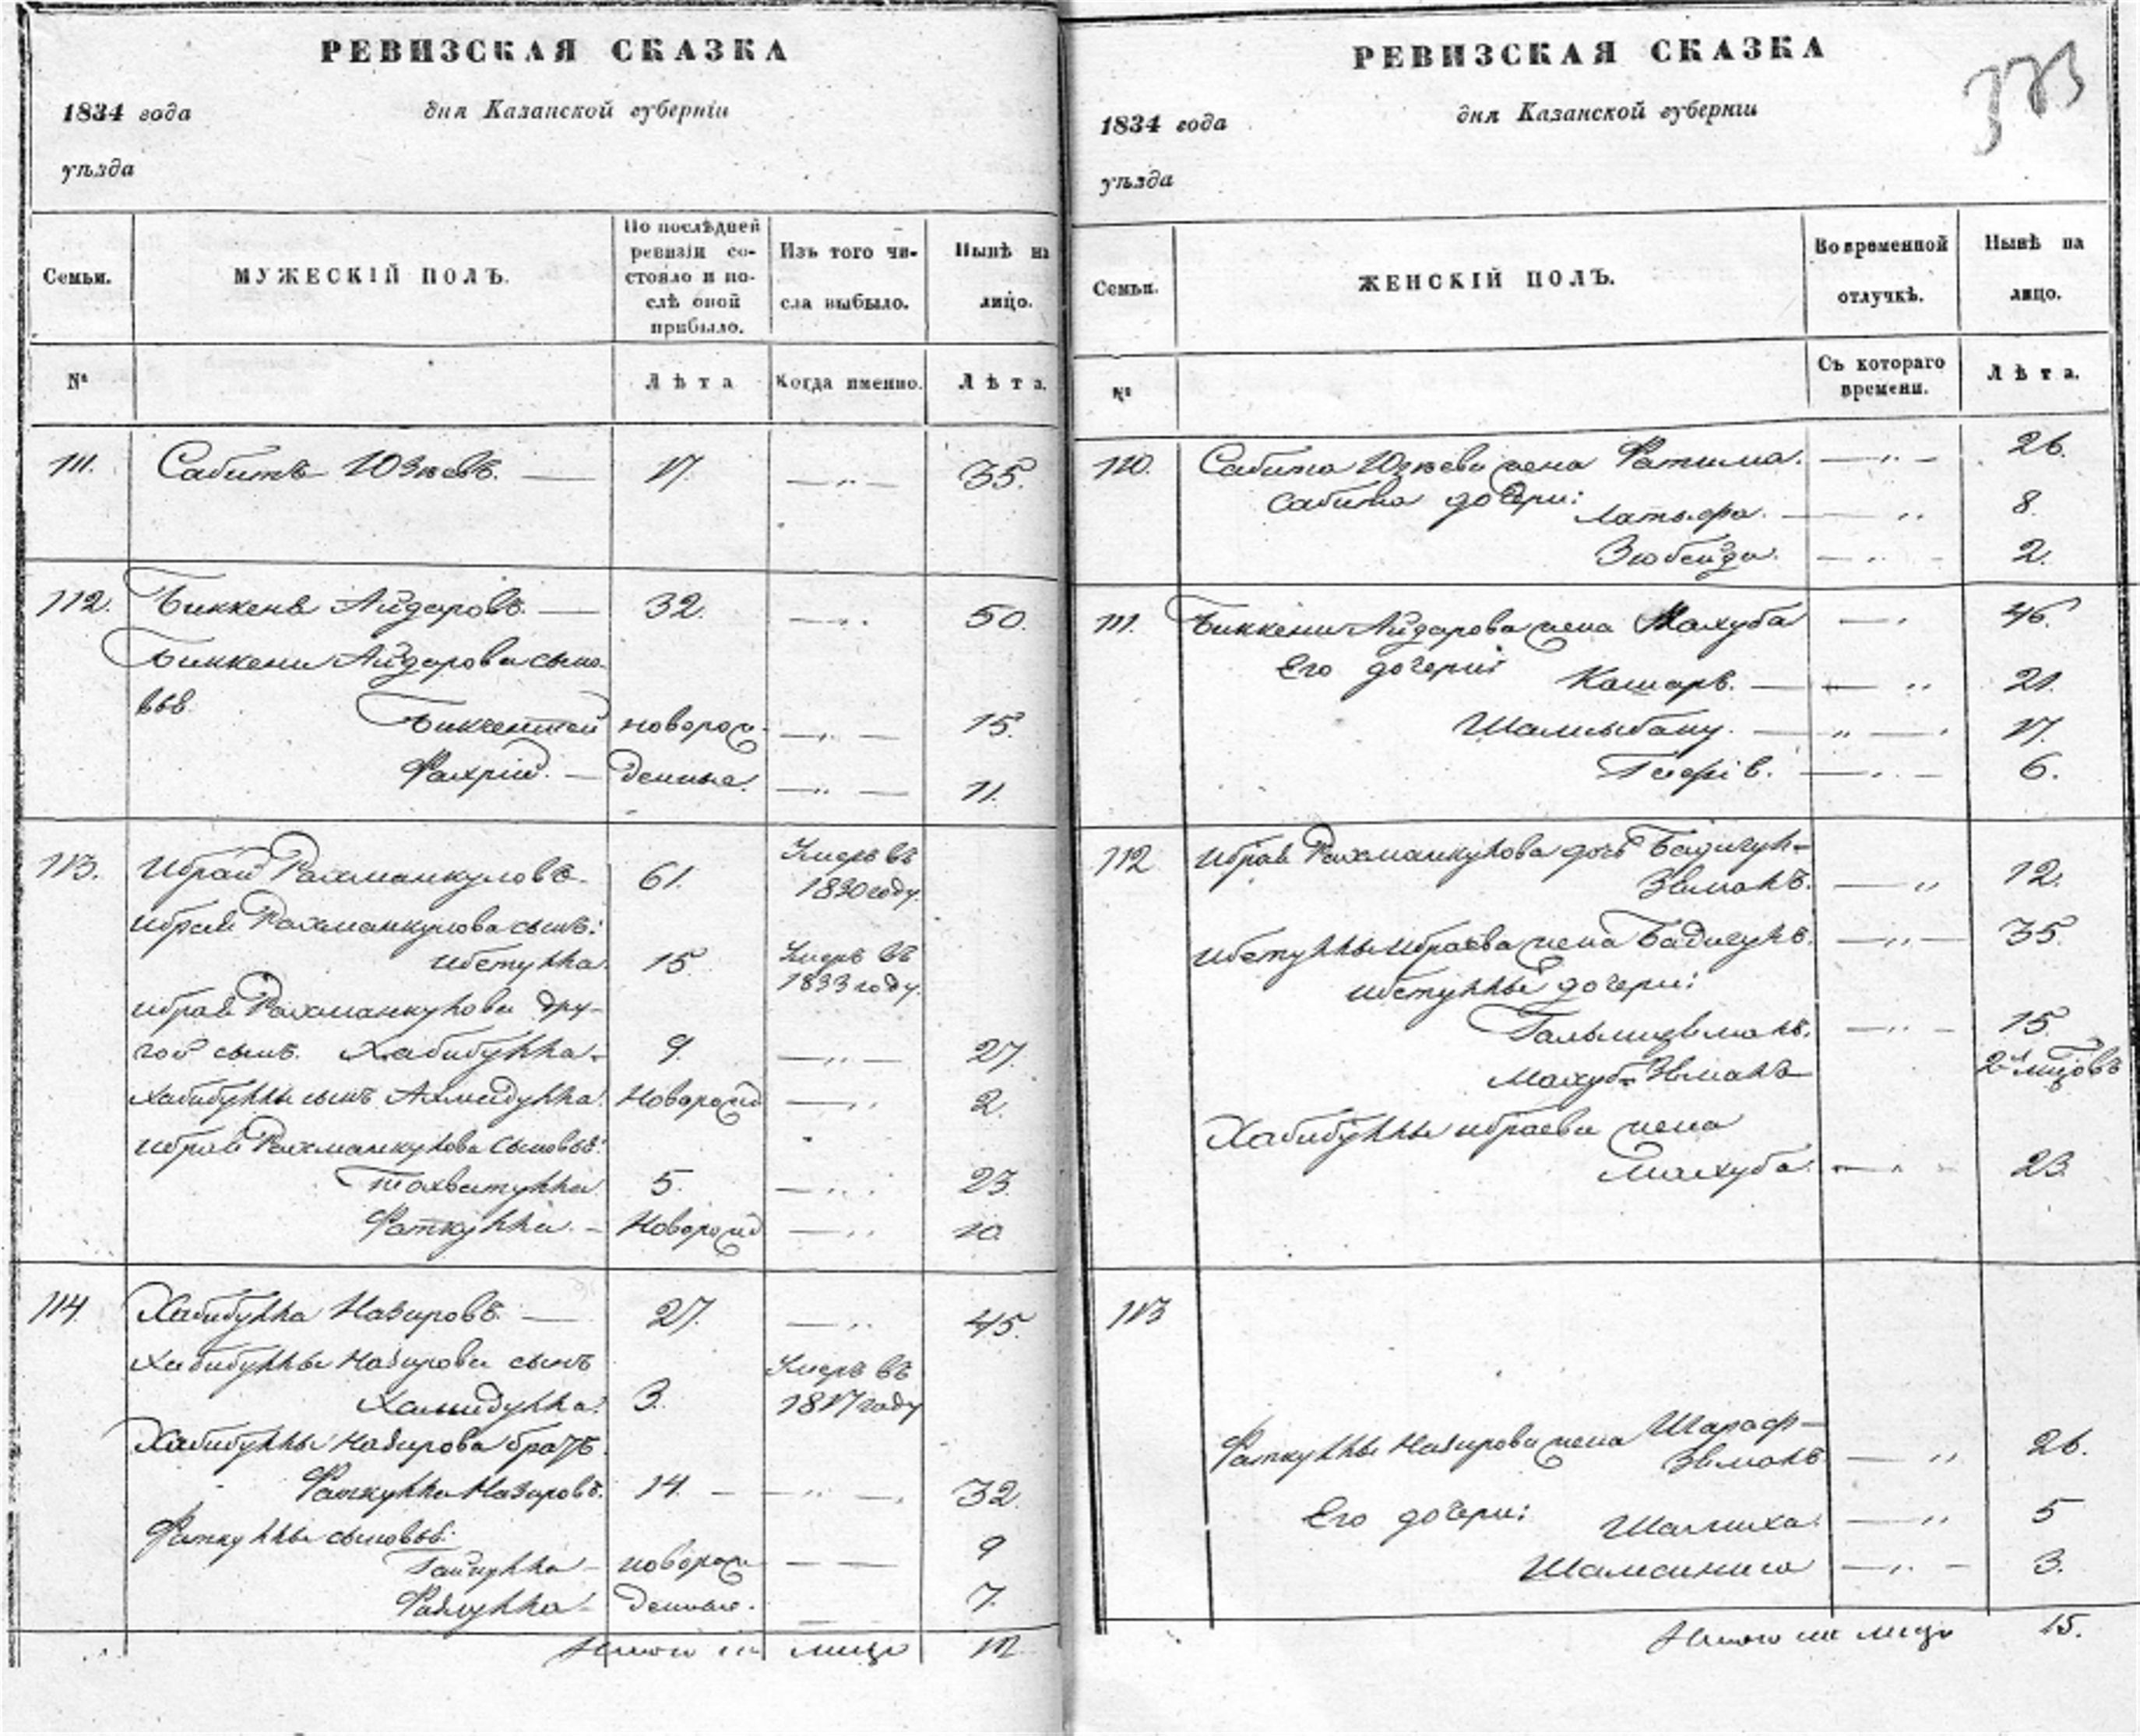 РЕВИЗСКАЯ СКАЗКА
1834 года дня Казанской губерніи
уѣзда
Семьи. МУЖЕСКІЙ ПОЛЪ. По послѣдней ревизіи состояло и послѣ оной прибыло. Изъ того числа выбыло. Нынѣ на лицо.
№ Лѣта Когда именно. Лѣта.
111. Сабитъ Юзѣевъ. — 17. — „ — 35.
112. Биккеня Айдаровъ. — 32. — „ 50.
Биккени Айдарова сыно-
вья
Бикчентей новорож- — „ — 15.
Фахрій. — денные. — „ — 11.
113. Ибрай Рахманкуловъ. 61. Умеръ въ
1830 году.
Ибрая Рахманкулова сынъ:
Ибетулла 15 Умеръ въ
1833 году.
Ибрая Рахманкулова дру-
гой сынъ. Хабибулла. 9. — „ — 27.
Хабибуллы сынъ Ахмедулла. Новорожд — „ 2.
Ибрая Рахманкулова сыновья:
Тохватулла 5. — „ 23.
Фаткулла. — Новорожд — „ 10.
114. Хабибулла Назировъ. — 27. — „ 45.
Хабибуллы Назирова сынъ Умеръ въ
Хамидулла. 3. 1817 году
Хабибуллы Назирова братъ.
Фаткулла Назировъ. 14. — — „ — 32.
Фаткуллы сыновья:
новорож — — 9
денные. 7.
Итого на лицо
РЕВИЗСКАЯ СКАЗКА 373
1834 года дня Казанской губерніи
уѣзда
Семьи. ЖЕНСКІЙ ПОЛЪ. Во временной отлучкѣ. Нынѣ на лицо.
№ Съ котораго времени. Лѣта.
110. Сабита Юзѣева жена Фатима. — „ — 26.
Сабита дочери: Латыфа. — „ 8.
Зюбейда. — „ — 2.
111. Биккени Айдарова жена Махуба — „ 46.
Его дочери: Кашаръ. — „ 21.
Шамсыбану. — „ — 17.
— „ — 6.
112 Ибрая Рахманкулова дочь Бадигул-
зямалъ. — „ 12.
Ибетуллы Ибраева жена Бадигулъ. — „ — 35.
Ибетуллы дочери:
— „ — 15.
Махубзямалъ 2 мѣсяцовъ
Хабибуллы Ибраева жена
Махуба. — „ — 23.
113
Фаткуллы Назирова жена Шараф-
зямалъ — „ 26.
Его дочери: Шамиха. — „ 5
— „ — 3.
Итого на лицо 15.